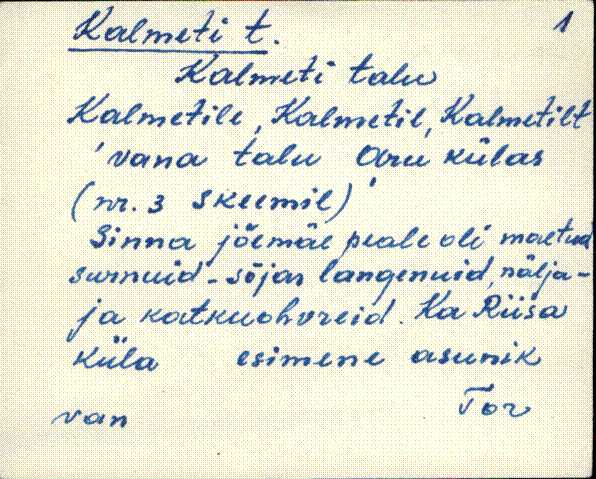 Kalmeti t. 1
Kalmeti talu
Kalmetile, Kalmetil, Kalmetilt
'vana talu Aru külas
(nr. 3 skeemil)'
Sinna jõemäe peale oli maetud
surnuid - sõjas langenuid, nälja-
ja katkuohvreid. Ka Riisa
küla esimene asunik
van Tor